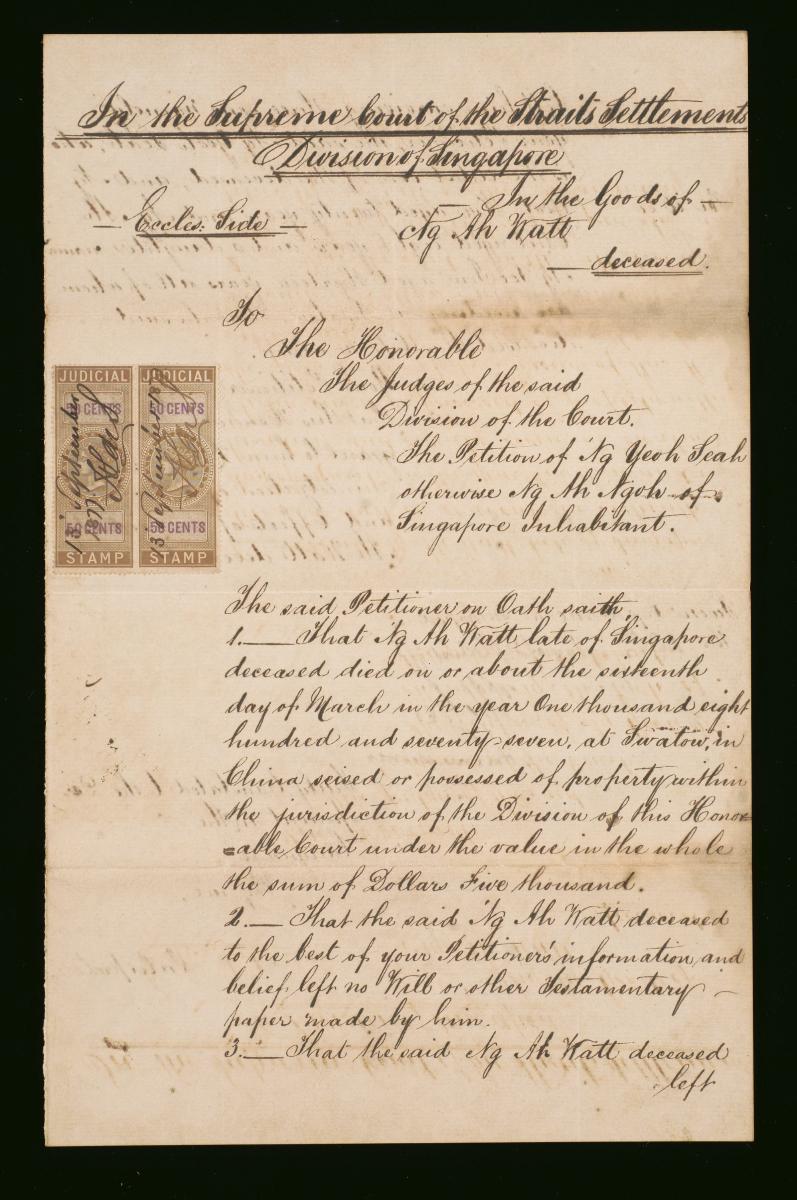 In the Supreme Court of the Straits Settlements
Division of Singapore
In the Goods of
Eccles: Side
Ng Ah Watt
deceased.
To
The Honorable
The Judges of the said
Division of the Court.
The Petition of Ng Yeoh Seah
otherwise Ng Ah Ngoh of
Singapore Inhabitant.
JUDICIAL JUDICIAL
50 CENTS 50 CENTS
50 CENTS 50 CENTS
STAMP STAMP
13 September 1877
13 September
The said Petitioner on Oath saith
1. — That Ng Ah Watt late of Singapore
deceased died on or about the sixteenth
day of March in the year One thousand eight
hundred and seventy-seven, at Swatow, in
China seised or possessed of property within
the jurisdiction of the Division of this Honor=
=able Court under the value in the whole
the sum of Dollars Five thousand.
2. — That the said Ng Ah Watt deceased
to the best of your Petitioner's information and
belief left no Will or other Testamentary —
paper made by him.
3. — That the said Ng Ah Watt deceased
left